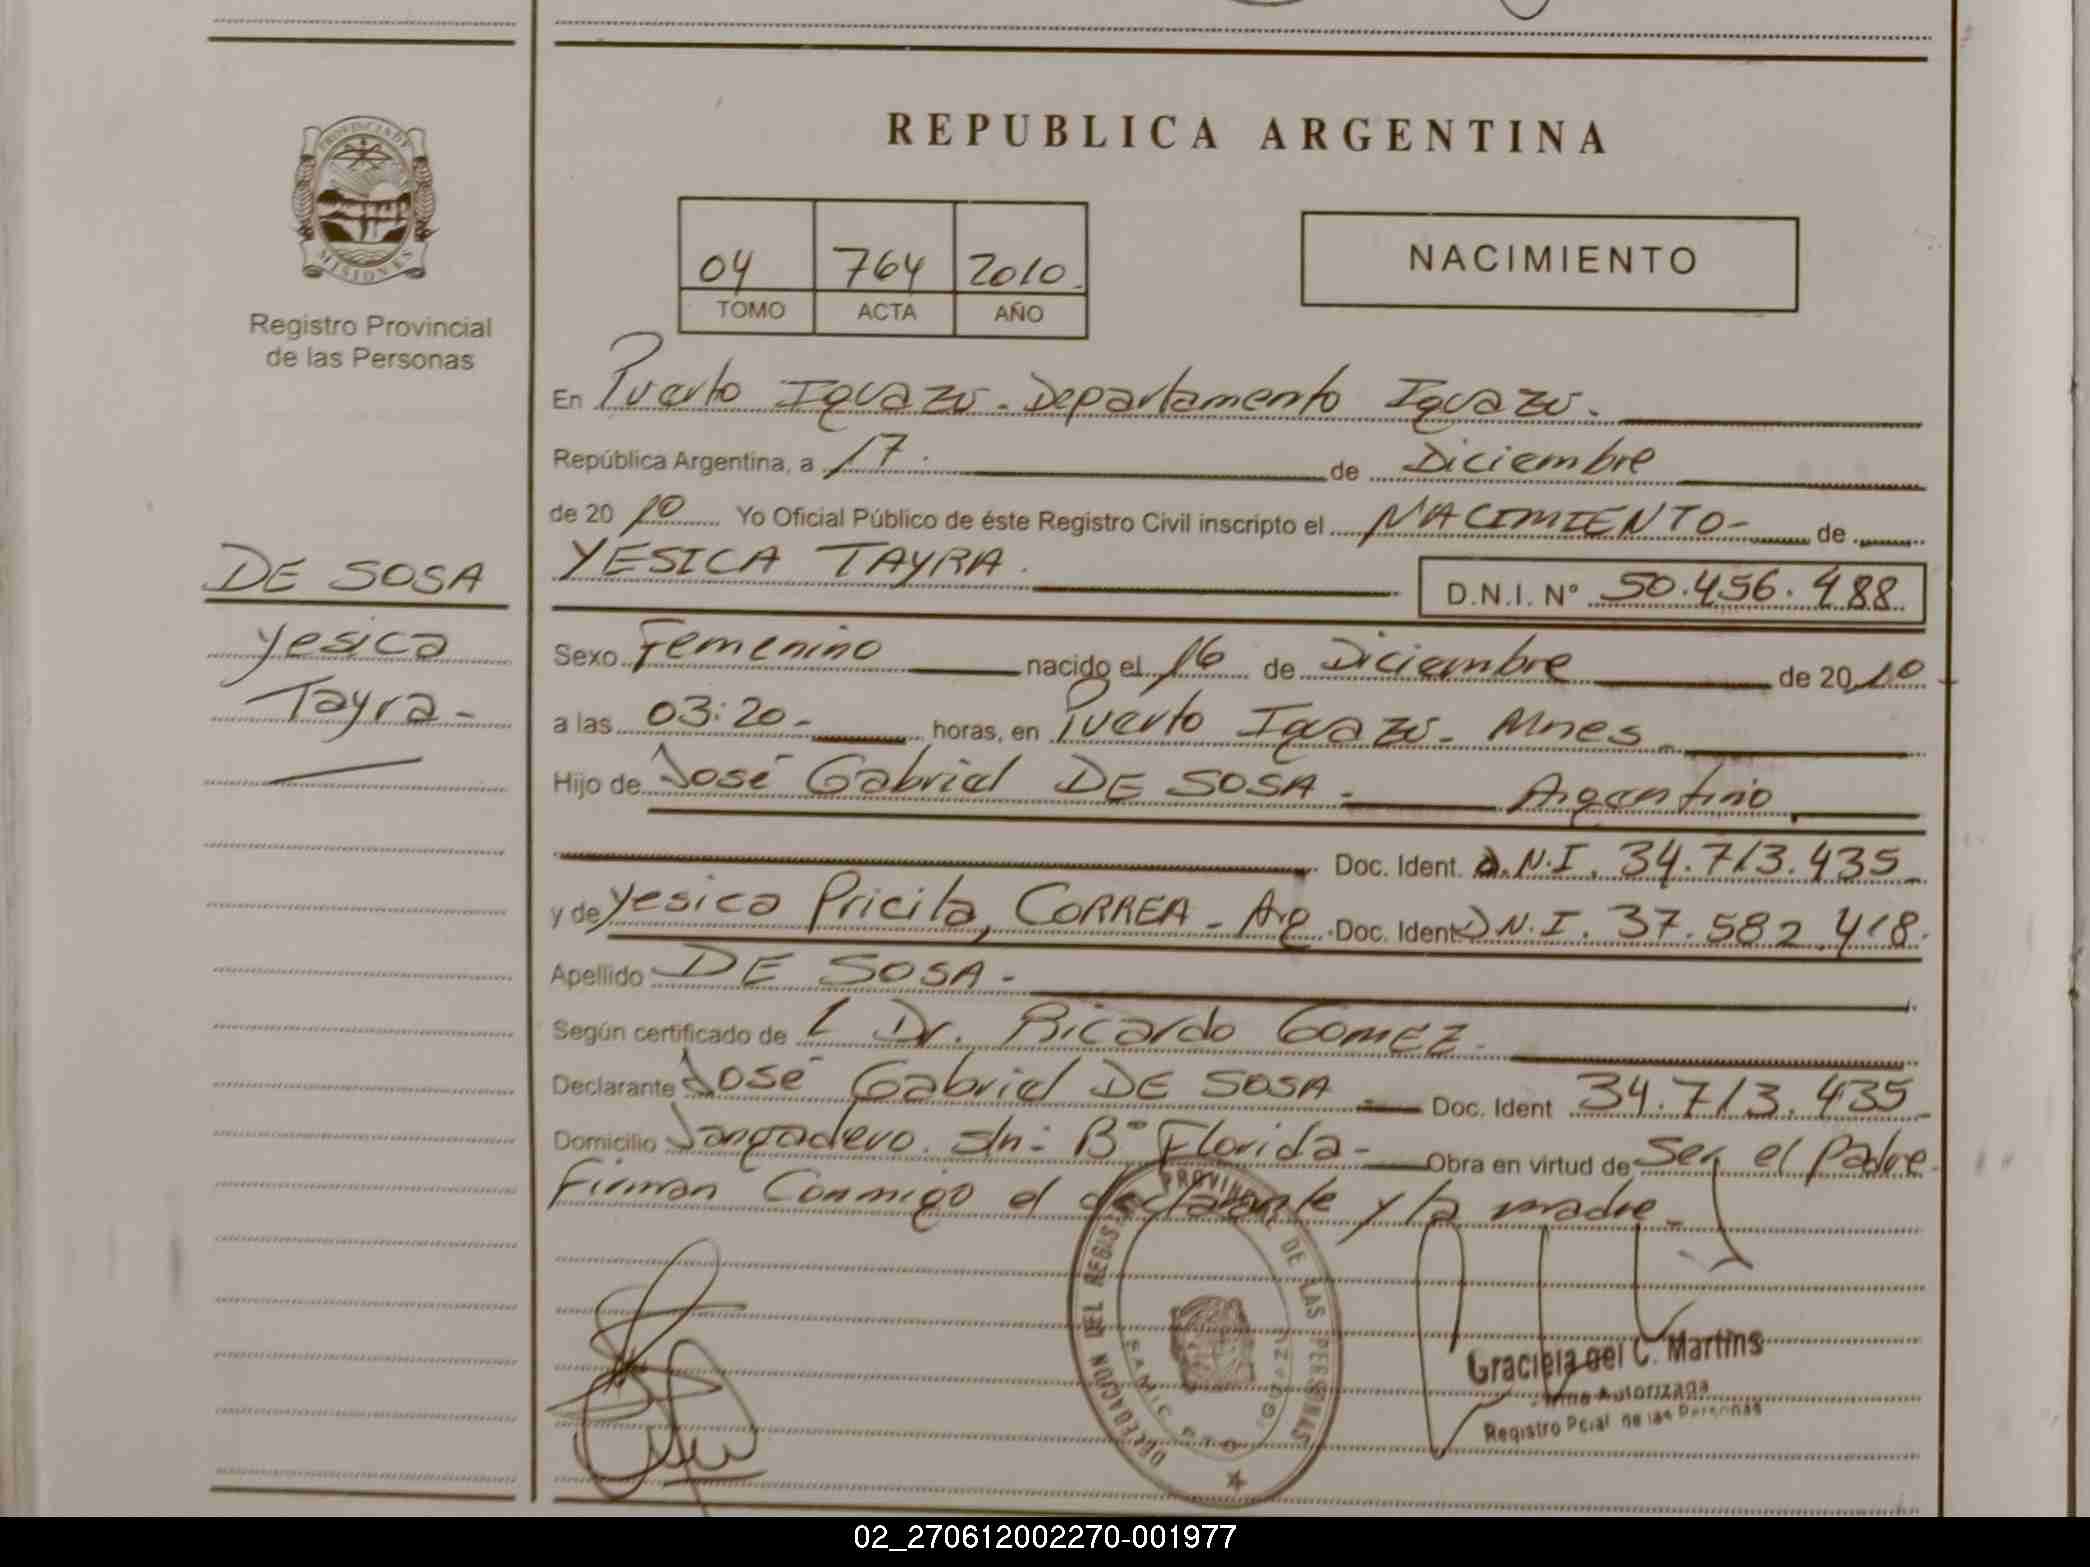 REPUBLICA ARGENTINA
PROVINCIA DE
MISIONES
Registro Provincial
de las Personas
04 764 2010.
TOMO ACTA AÑO
NACIMIENTO
En Puerto Iguazú. Departamento Iguazú.
República Argentina, a 17. de Diciembre
de 20 10 Yo Oficial Público de éste Registro Civil inscripto el NACIMIENTO- de
YESICA TAYRA. D.N.I. N° 50.456.488
DE SOSA
Yesica
Tayra-
Sexo Femenino nacido el 16 de Diciembre de 20 10
a las 03:20- horas, en Puerto Iguazú- Mnes-
Hijo de José Gabriel DE SOSA- Argentino
Doc. Ident. D.N.I. 34.713.435-
y de Yesica Pricila, CORREA- Arg. Doc. Ident D.N.I. 37.582.418.
Apellido DE SOSA-
Según certificado de L Dr. Ricardo Gomez-
Declarante José Gabriel DE SOSA- Doc. Ident 34.713.435-
Domicilio Jangadero. s/n- B° Florida- Obra en virtud de Ser el Padre-
Firman Conmigo el declarante y la madre-
DELEGACION DEL REGISTRO PROVINCIAL DE LAS PERSONAS
Graciela del C. Martins
Firma Autorizada
Registro Pcial de las Personas
02_270612002270-001977